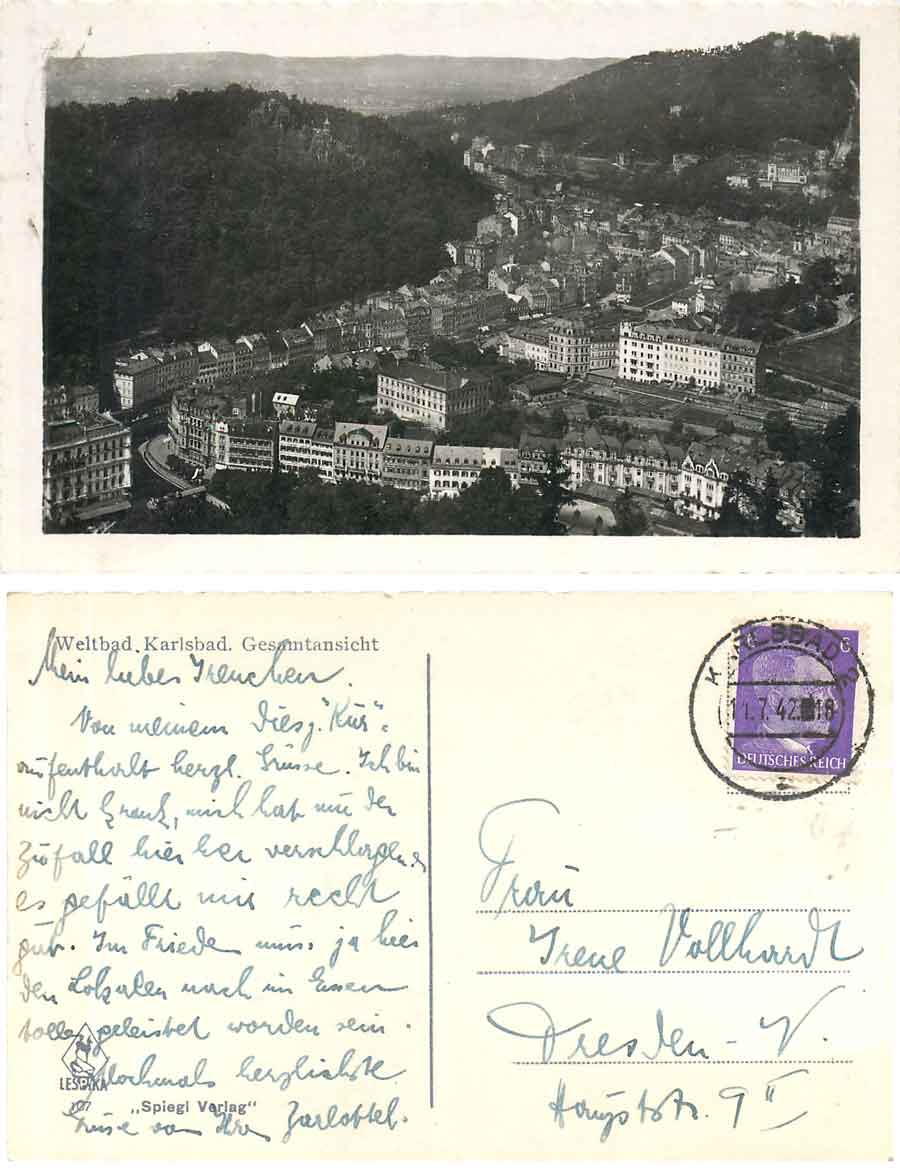 Weltbad Karlsbad. Gesamtansicht
Mein liebes Irenchen.
Von meinem diesj. "Kur"=
aufenthalt herzl. Grüsse. Ich bin
nicht krank, mich hat nur der
Zufall hier her verschlagen
es gefällt mir recht
gut. Im Friede muss ja hier
den Lokalen nach im Essen
tolles geleistet worden sein.
Nochmals herzlichste
LESIKA
107 „Spiegl Verlag"
Grüse von Ihrer
KARLSBAD
11.7.42 18
6
DEUTSCHES REICH
2
Frau
Irene Vollhardt
Dresden - N.
Hauptstr. 9 II